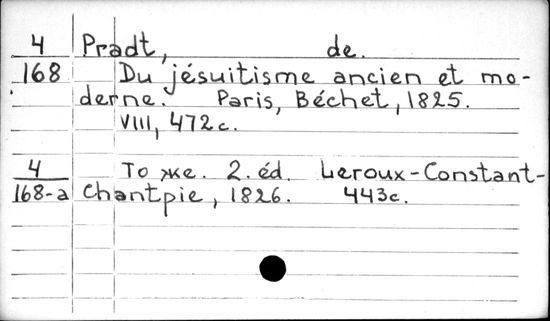 4 Pradt, de.
168 Du jésuitisme ancien et mo-
derne. Paris, Béchet, 1825.
VIII, 472 с.
4 То же. 2. éd. Leroux-Constant-
168-a Chantpie, 1826. 443 с.